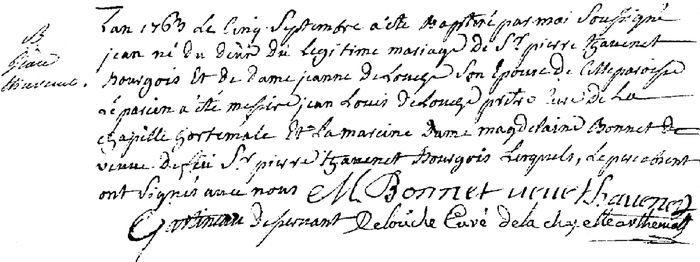 B
jean
thavenet.
Lan 1763 le Cinq Septembre a été Baptisé par moi Soussigné
jean né du deux du legitime mariage de Sr. pierre thavenet
Bourgois Et de dame jeanne delouche Son Epouse de Cette paroisse
Le parein a été messire jean Louis delouche prêtre Curé de La
chapelle hortemale Et la mareine Dame magdelaine Bonnet
veuve de feu Sr. pierre thavenet Bourgois Lesquels, Le pere absent
ont Signés avec nous M Bonnet veuve thavenet
desservant Delouche Curé de la chapelle arthemale